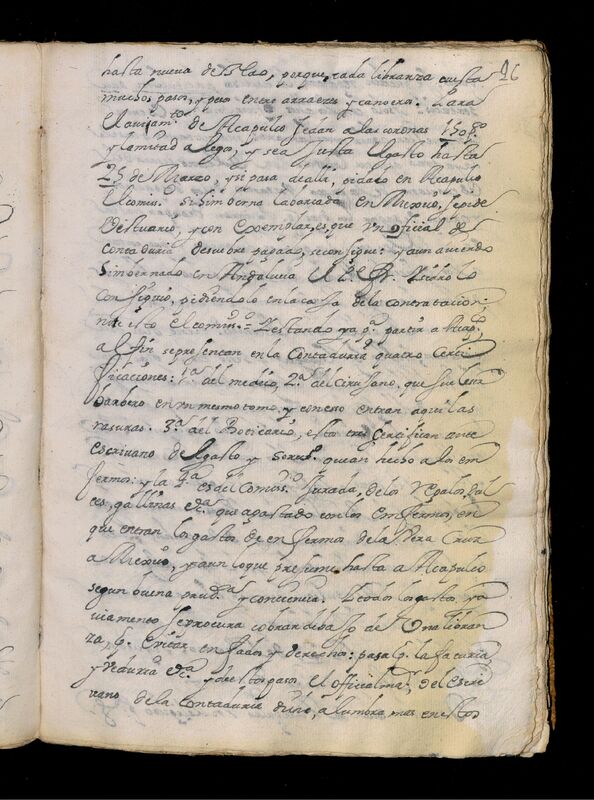 16
hasta nueva de Blao, porque cada libranza cuesta
muchos pasos, y peso entre arraeres y canoero. Para
el aviamto. de Acapulco se dan a las coronas 150 ps.
y la mitad a legos, y sea justa el gasto hasta
25 de Marzo, y si pasa de alli, pidalo en Acapulco
el comiso. si simberna la barcada en Mexico, se pide
Bestuario, y con exemplar, es que un oficial de
contaduria descubre papeles, se consigue: y aun aviendo
simbernado en Andalucia el P. Fr. Isidro lo
consiguio, pidiendolo en la casa de la contratacion:
 esto el comiso. = Y estando ya pa. partir a Acapo.
al fin se presentan en la Contaduria quatro Certi
ficaciones: 1a. del medico, 2a. del cirujano, que suele ser
barbero en un mesmo tomo, y con eso entran aqui las
rasuras. 3a. del Boticario, estos tres certifican ante
escrivano del gasto y que an hecho a los en
fermos: y la 4a. es del Comiso. Jurada, de los Regalos, dul
ces, gallinas etca. que a gastado con los Enfermos, en
que entran los gastos de enfermos de la Vera Cruz
a Mexico, y aun lo que presume hasta a Acapulco
segun buena prudca. y conciencia. Y todos los gastos, y a
viamento se procura cobrar debajo de Una libran
za, pa. evitar enfados y derechos: pasa pa. la factoria,
y Veduria etca. y de estos pasos el official mar. del Escri
vano de la Contaduria dirá, alumbra mas en estos